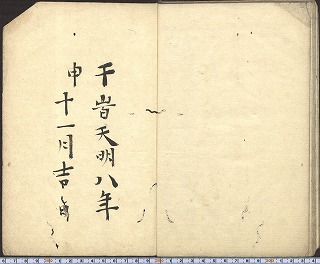 干時天明八年
申十一月吉旦